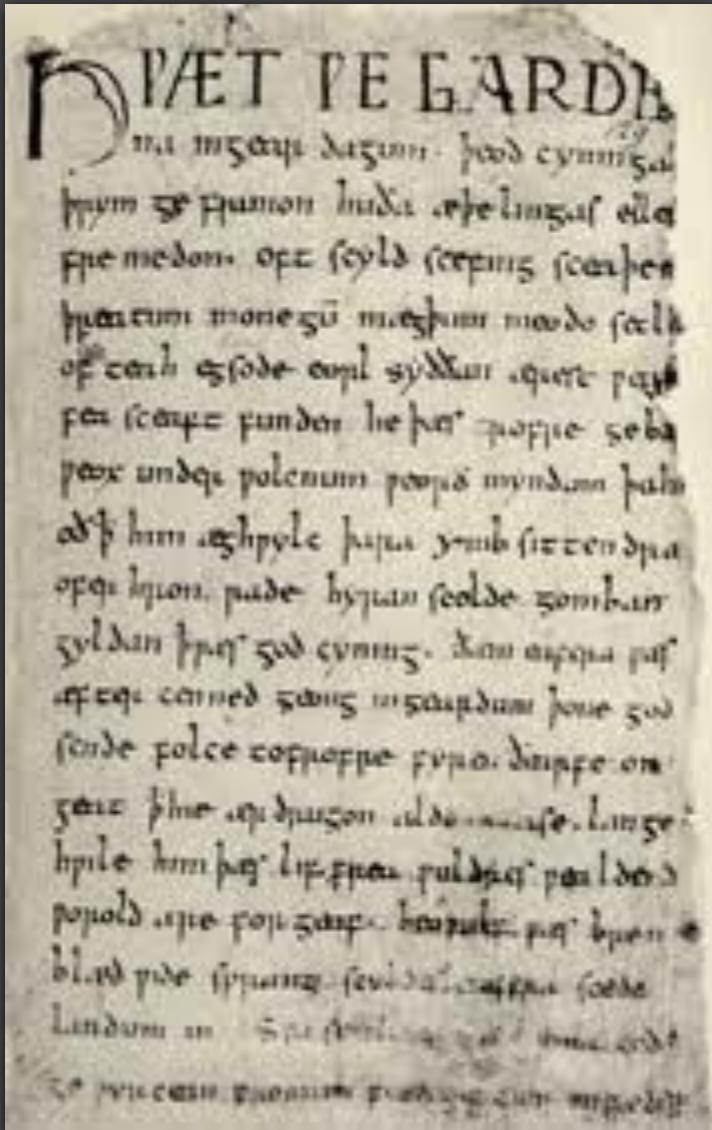 HǷÆT ǷE GARDE
na ingear dagum. þeod cyninga
þrym ge frunon huða æþelingas elle
fremedon. oft scyld scefing sceaþe
þreatum monegū mægþum meodo setl
of teah egsode eorl syððan ærest ƿear
fea sceaft funden he þæs frofre geba
ƿeox under ƿolcnum ƿeorð myndum þah
oðꝥ him æghƿylc þara ymb sittendra
ofer hron rade hyran scolde gomban
gyldan þæt ƿæs god cyning. ðæm eafera ƿæs
æfter cenned geong ingeardum þone god
sende folce tofrofre fyren ðearfe on
geat ꝥhie ær drugon aldor ase. lange
hƿile him þæs lif frea ƿuldres ƿealdend
ƿorold are for geaf. beoƿulf ƿæs breme
blæd ƿide sprang scyldes eafera scede
landum in